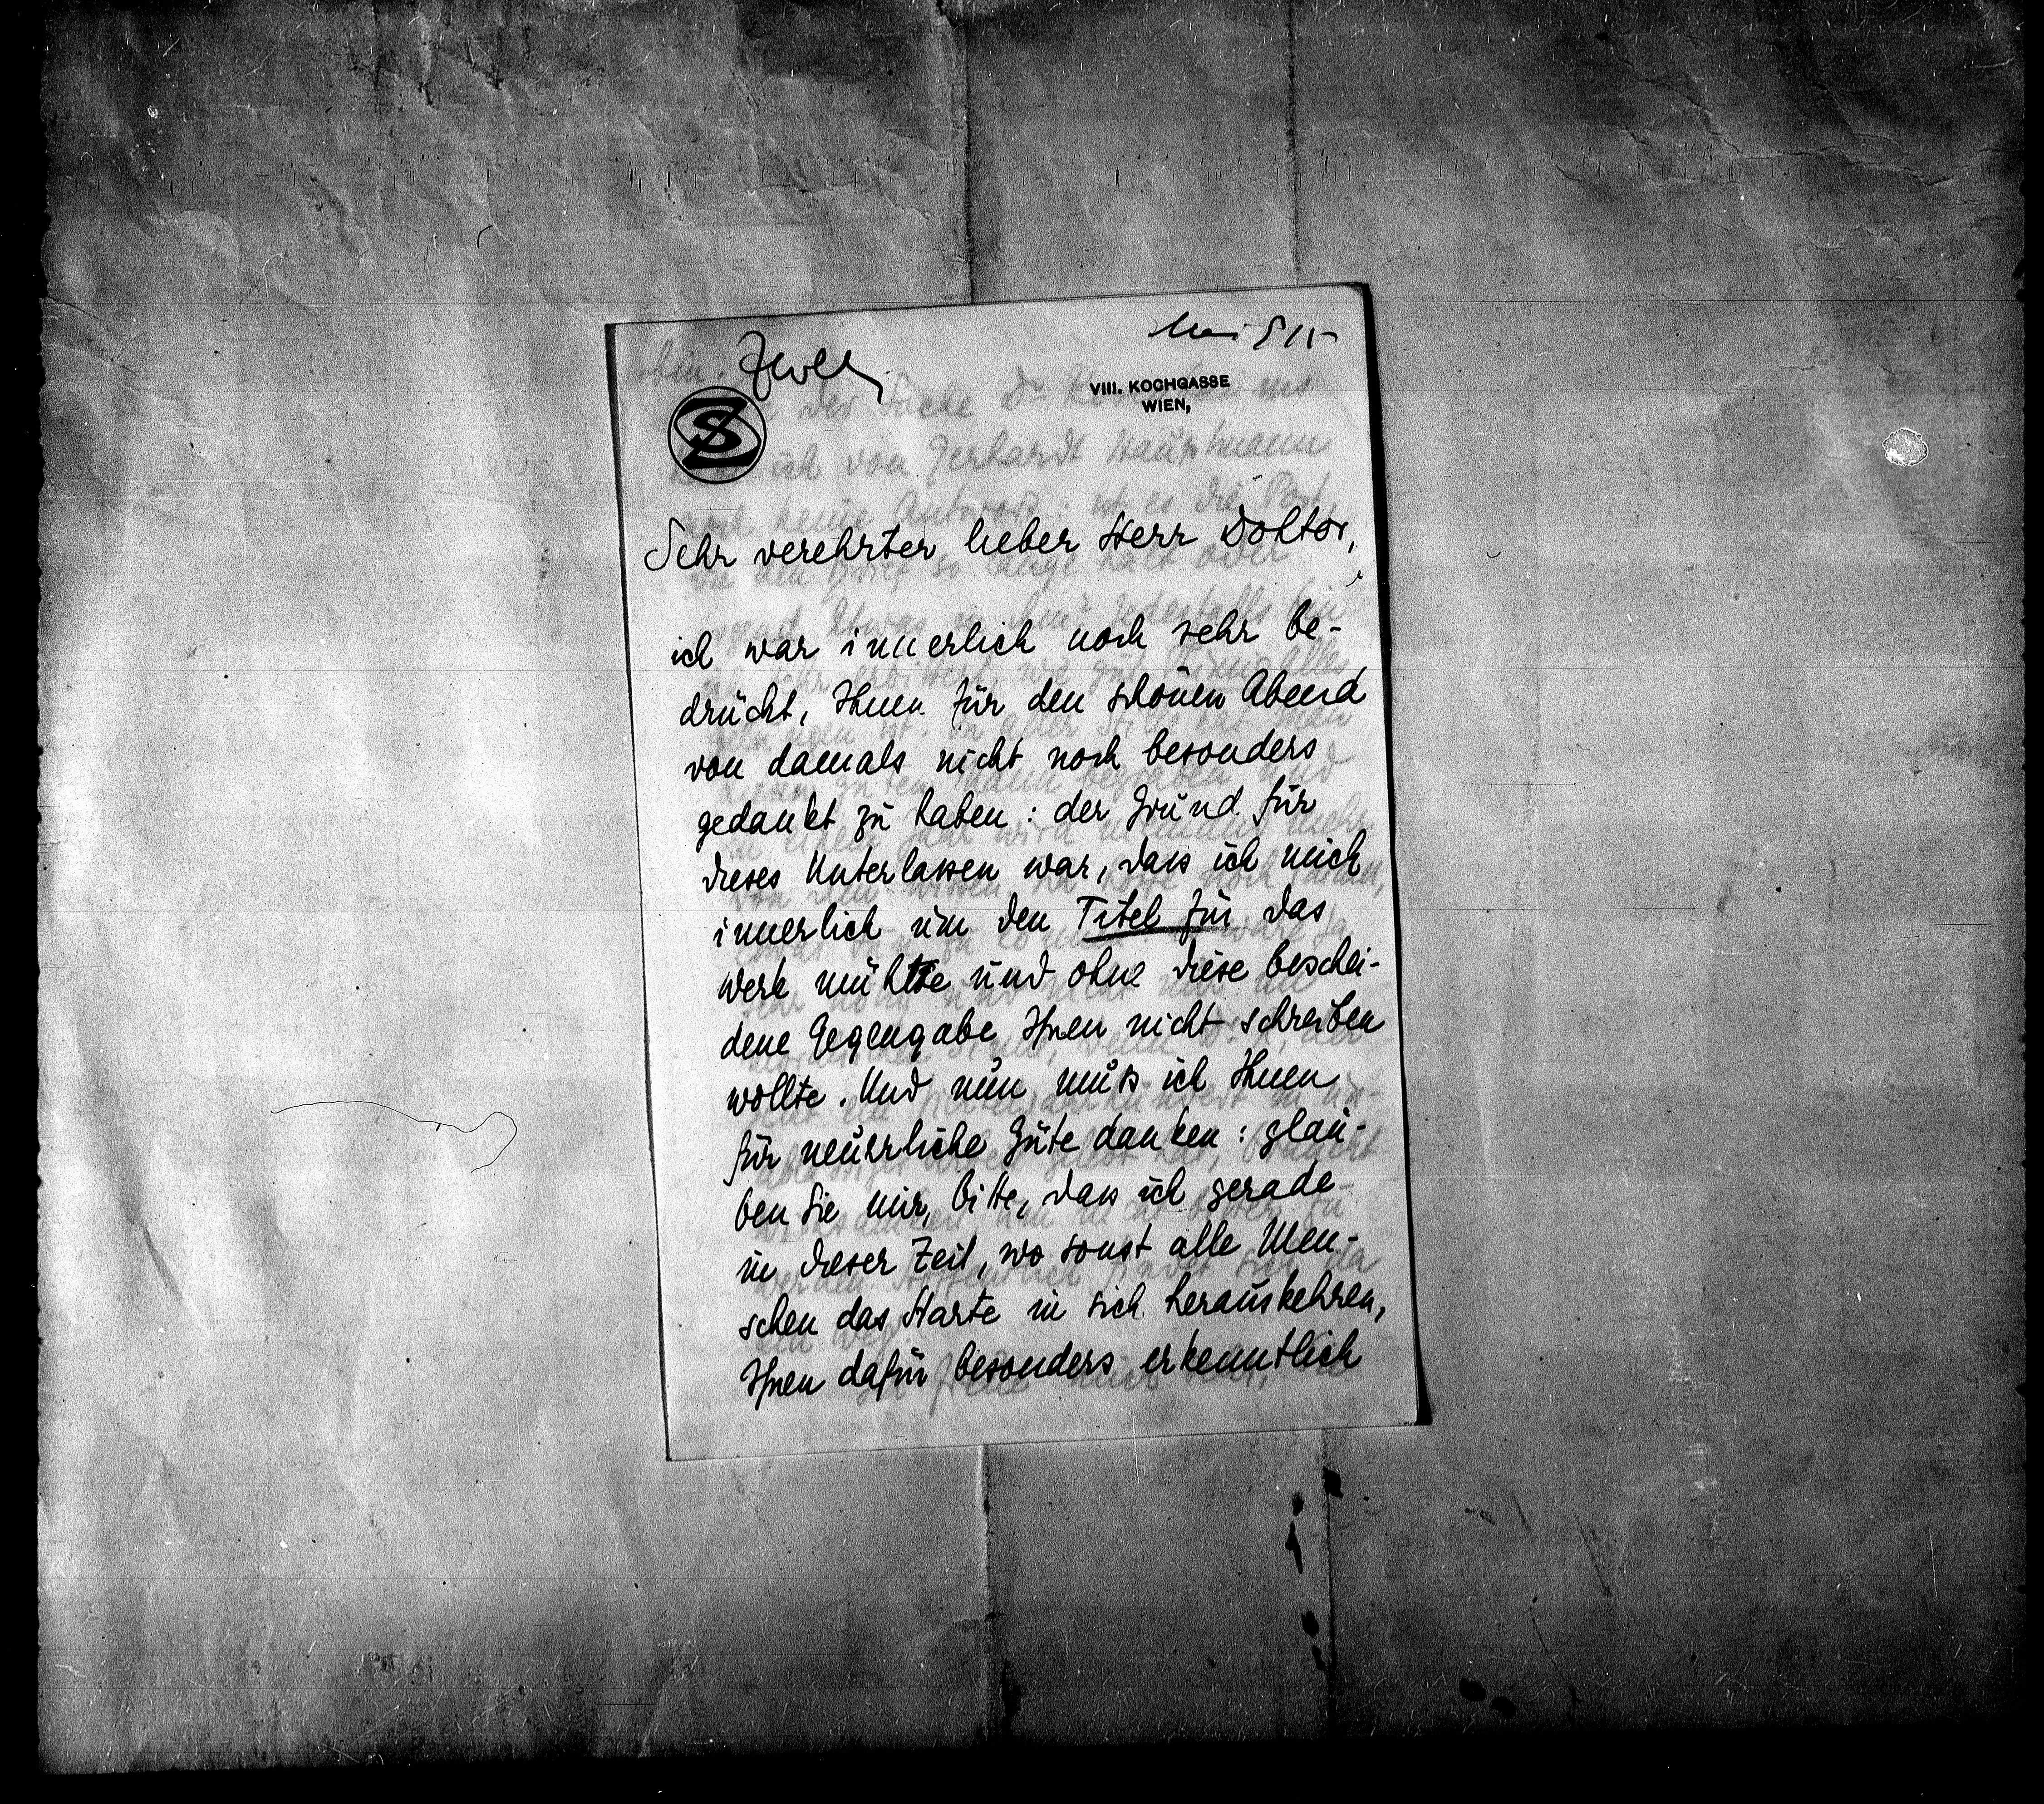 Zweig
Mai 915
SZ
VIII. KOCHGASSE
WIEN,
Sehr verehrter lieber Herr Doktor,
ich war innerlich noch sehr be-
drückt, Ihnen für den schönen Abend
von damals nicht noch besonders
gedankt zu haben: der Grund für
dieses Unterlassen war, dass ich mich
innerlich um den Titel für das
Werk mühte und ohne diese beschei-
dene Gegengabe Ihnen nicht schreiben
wollte. Und nun muss ich Ihnen
für neuerliche Güte danken: glau-
ben Sie mir, bitte, dass ich gerade
in dieser Zeit, wo sonst alle Men-
schen das Harte in sich herauskehren,
Ihnen dafür besonders erkenntlich